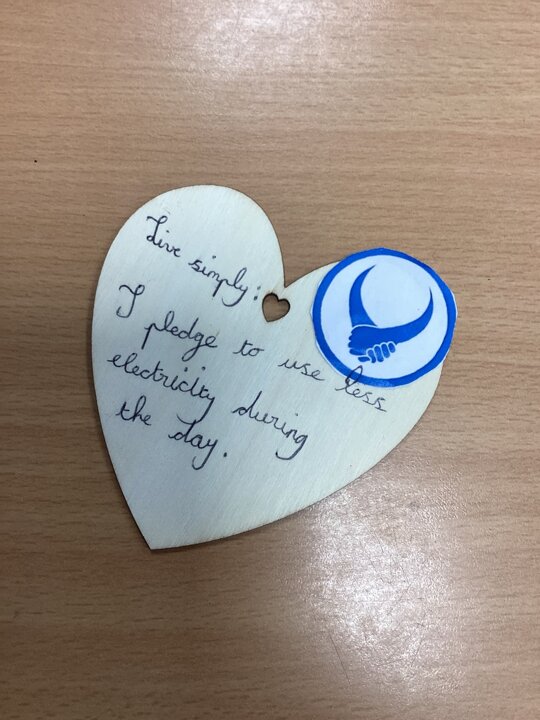 Live simply:
I pledge to use less
electricity during
the day.